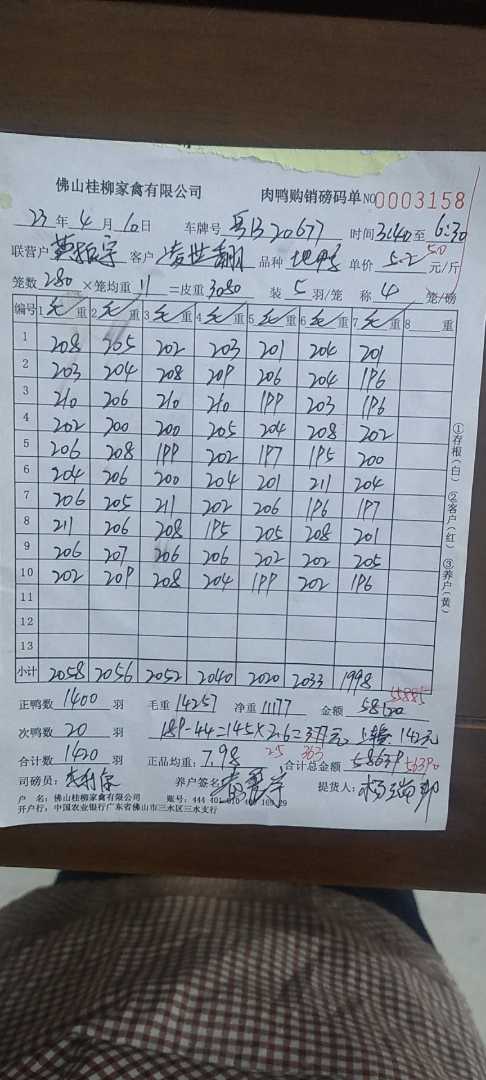 佛山桂柳家禽有限公司 肉鸭购销磅码单 NO 0003158
23 年 4 月 10 日 车牌号 20677 时间 3:40 至 6:30
联营户 黄振宇 客户 凌世翻 品种 单价 5.2 5.0 元/斤
笼数 280 × 笼均重 11 =皮重 3080 装 5 羽/笼 称 4 笼/磅
编号 1 毛 重 2 毛 重 3 毛 重 4 毛 重 5 毛 重 6 毛 重 7 毛 重 8 重
1 208 205 202 203 201 204 201
2 203 204 208 209 206 204 196
3 210 206 210 210 199 203 196
4 202 200 200 205 204 208 202
5 206 208 199 202 197 195 200
6 204 206 200 204 201 211 204
7 206 205 211 202 206 196 197
8 211 206 208 195 205 208 201
9 206 207 206 206 202 202 205
10 202 209 208 204 199 202 196
11
12
13
小计 2058 2056 2052 2040 2020 2033 1998
①存根(白) ②客户(红) ③养户(黄)
正鸭数 1400 羽 毛重 14257 净重 11177 金额 55885
次鸭数 20 羽 189-44=145×2.6= 142元
合计数 1420 羽 正品均重: 7.98 25 363 合计总金额 56390
司磅员: 养户签名: 提货人:
户 名: 佛山桂柳家禽有限公司 账号:
开户行: 中国农业银行广东省佛山市三水区三水支行